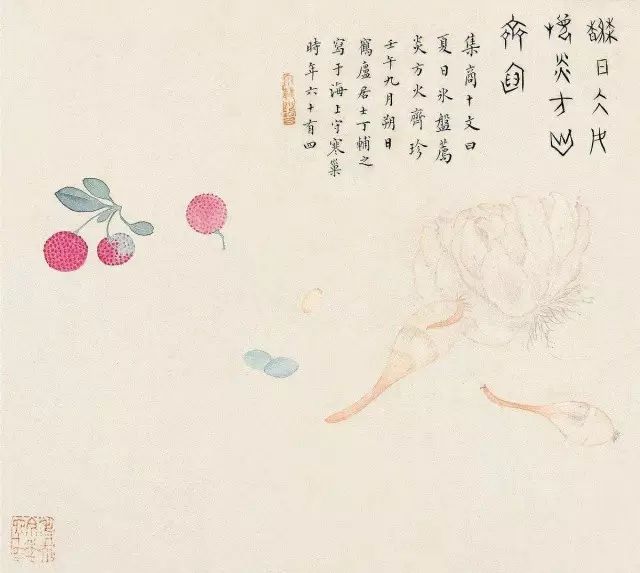 夏日冰盤
薦炎方火
齊珍
集商卜文曰
夏日氷盤薦
炎方火齊珍
壬午九月朔日
鶴廬居士丁輔之
寫于海上守寒巢
時年六十有四